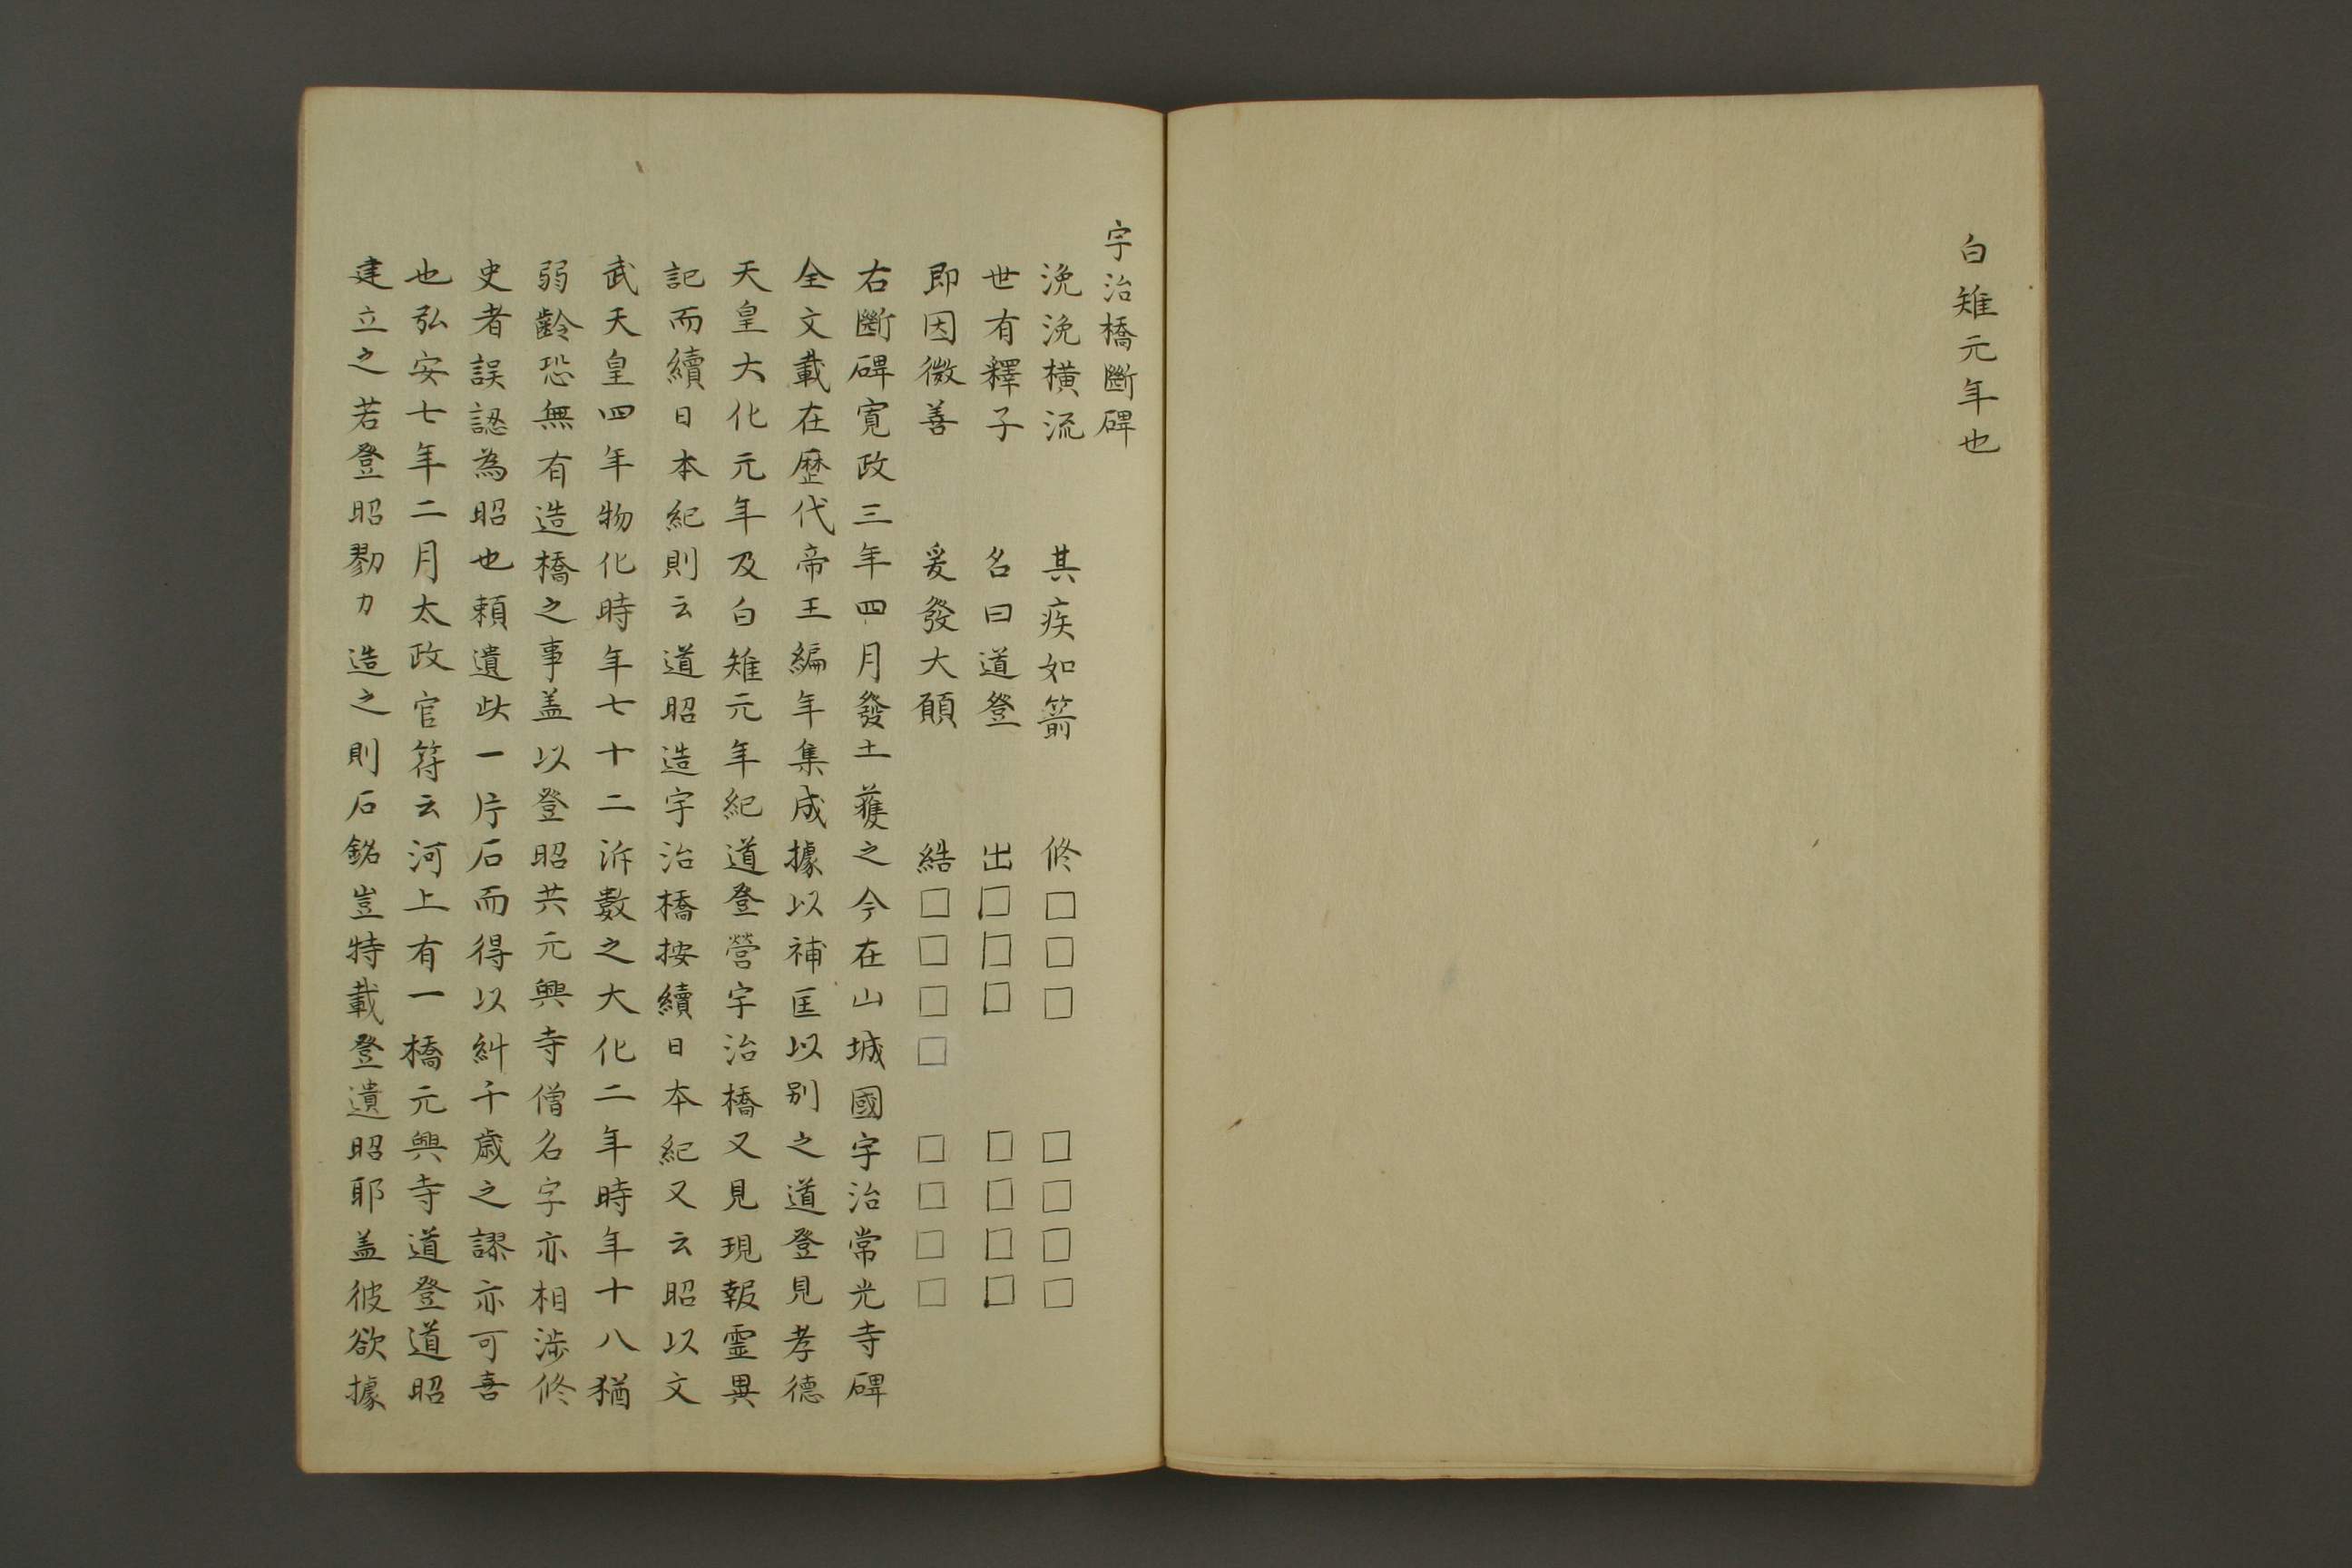 白雉元年也
宇治橋斷碑
浼浼橫流　其疾如箭　修□□□　□□□□
世有釋子　名曰道登　出□□□　□□□□
即因微善　爰發大願　結□□□□　□□□□
右斷碑寬政三年四月發土獲之今在山城國宇治常光寺碑
全文載在歷代帝王編年集成據以補匡以别之道登見孝德
天皇大化元年及白雉元年紀道登營宇治橋又見現報霊異
記而續日本紀則云道昭造宇治橋按續日本紀又云昭以文
武天皇四年物化時年七十二泝數之大化二年時年十八猶
弱齡恐無有造橋之事盖以登昭共元興寺僧名字亦相渉修
史者誤認為昭也賴遺此一片石而得以糾千歲之謬亦可喜
也弘安七年二月太政官符云河上有一橋元興寺道登道昭
建立之若登昭勠力造之則石銘豈特載登遺昭耶盖彼欲據